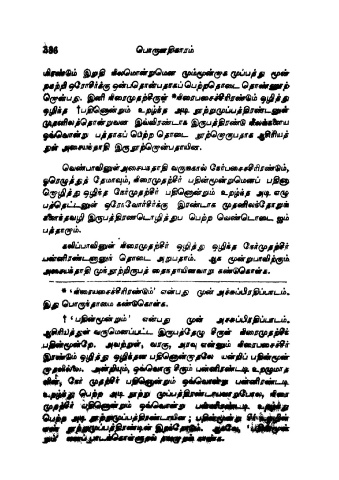 386 பொருளதிகாரம்
யிரண்டும் இறதி நிலமொன்றுமென மும்மூன்றாக முப்பத்து மூன்
றகற்றி ஒரோசீர்க்கு ஒன்பதொன்பதாகப் பெற்றதொடை தொண்ணூற்
றொன்பது. இனி நிரைமுதற்சீருள் *நிரையசைச்சீரிரண்டும் ஒழித்து
ஒழிந்த †பதினொன்றும் உறழ்ந்த அடி நூற்றுமுப்பத்திரண்டனுள்
முதனிலத்தொன்றுவன இவ்விரண்டாக இருபத்திரண்டு
ஒவ்வொன்று பத்தாகப் பெற்ற தொடை நூற்றொருபதாக ஆசிரியத்
துள் அசையந்தாதி இருநூற்றொன்பதாயின.
வெண்பாவினுள் அசையந்தாதி வருங்கால் நேர்பசைச்சீரிரண்டும்,
ஓரெழுத்துத் தேமாவும், நிரைமுதற்சீர் பதின்மூன்றுமெனப் பதினா
றொழித்து ஒழிந்த நேர்முதற்சீர் பதினொன்றும் உறழ்ந்த அடி எழு
பத்தெட்டனுள் ஒரோவோர்சீர்க்கு இரண்டாக முதனிலத்தோறுள்
இருபத்திரண்டொழித்துப் பெற்ற வெண்டொடை ஐம்
பத்தாறும்.
கலிப்பாவினுள் நிரைமுதற்சீர் ஒழித்து ஒழிந்த நேர்முதற்சீர்
பன்னிரண்டனுளும் தொடை அறுபதாம். ஆக மூன்றுபாவிற்கும்
அசையந்தாதி முந்நூற்றிருபத் தைந்தாயினவாறு கண்டுகொள்க.
* 'நிரையசைச்சீரிரண்டும்' என்பது முன் அச்சுப்பிரதிப்பாடம்.
இது பொருந்தாமை கண்டுகொள்க.
† 'பதின்மூன்றும்' என்பது முன் அச்சுப்பிரதிப்பாடம்.
ஆசிரியத்துள் வருமெனப்பட்ட இருபத்தேழு சீருள் நிரைமுதற்சீர்
பதின்மூன்றே. அவற்றுள், வரகு, அரவு என்னும் நிரைபசைச்சீர்
இரண்டும் ஒழித்து ஒழிந்தன பதினொன்றாதலே யன்றிப் பதின்மூன்
றாதலில்லை. அன்றியும், ஒவ்வொரு சீரும் பன்னிரண்டடி உறழுமாத
லின், நேர் முதற்சீர் பதினொன்றும் ஒவ்வொன்று பன்னிரண்டடி
உறழ்ந்து பெற்ற அடி நூற்று முப்பத்திரண்டாயவாறுபோல, நிரை
முதற்சீர் பதினொன்றும் ஒவ்வொன்று பன்னிரண்டடி உறழ்ந்து
பெற்ற அடி நூற்றுமுப்பத்திரண்டாயின;
நூற்றுமுப்பத்திரண்டின்